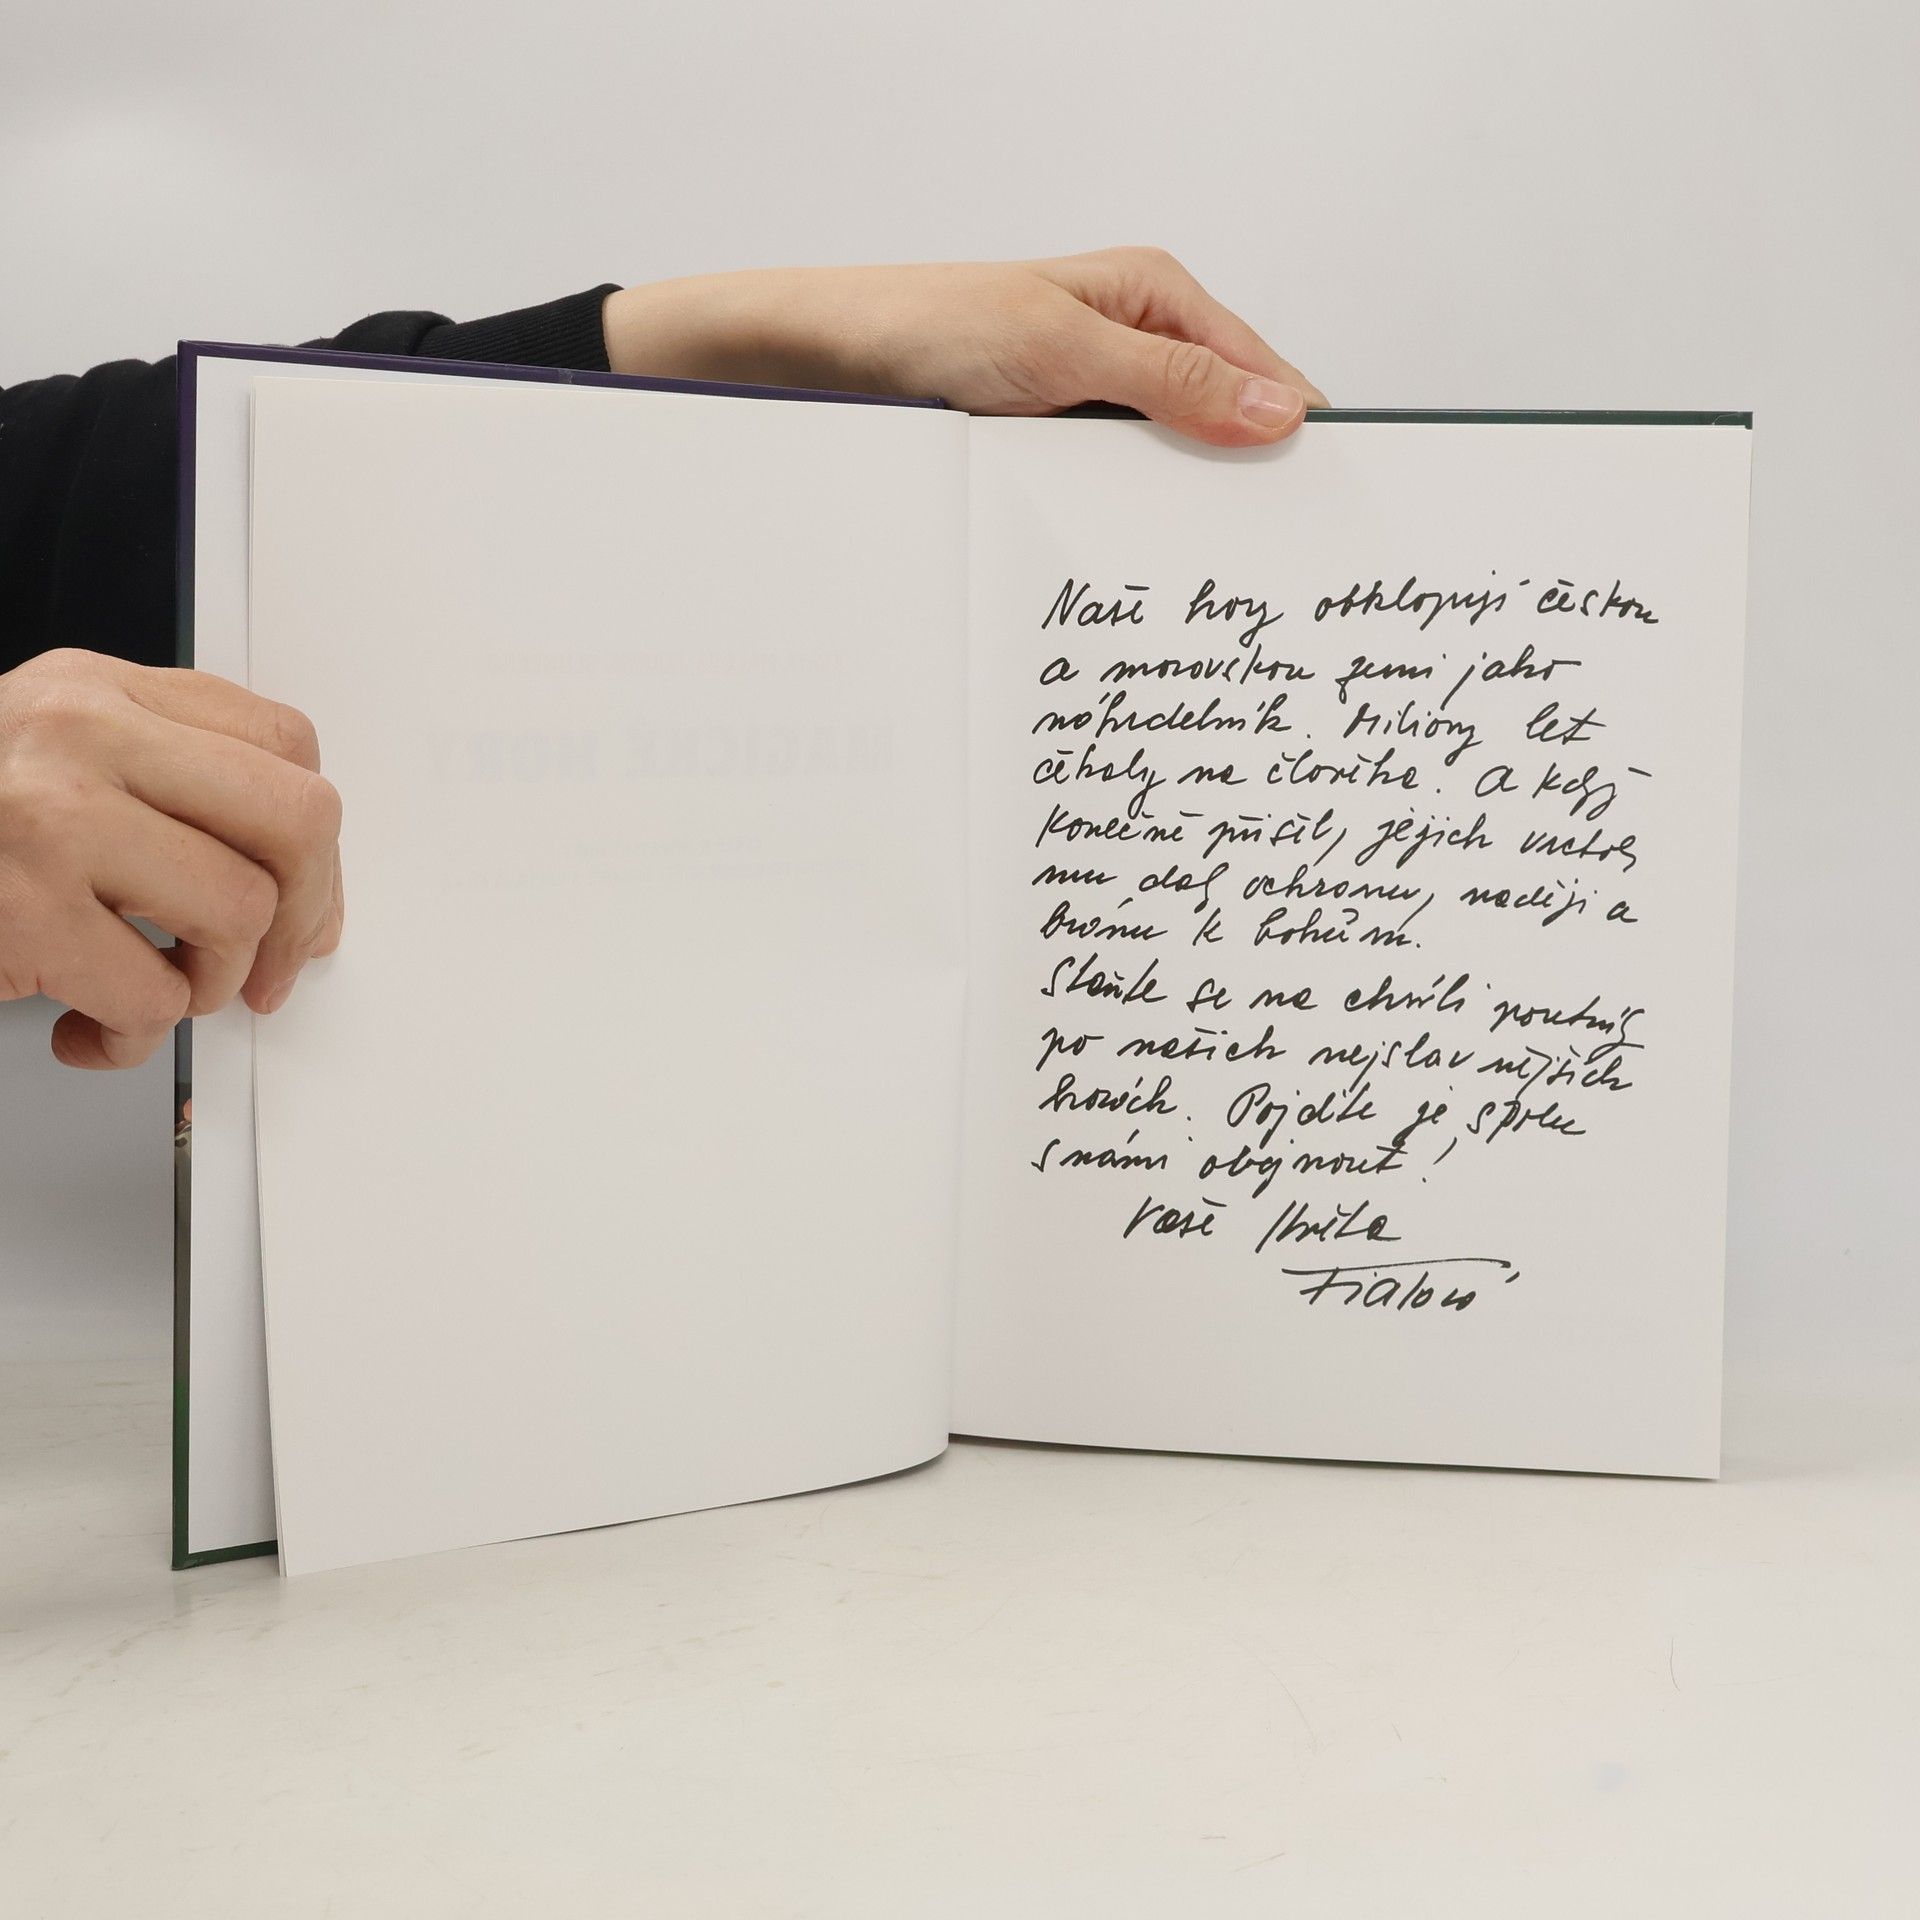 Naše hory obklopují českou
a moravskou zemi jako
náhrdelník. Miliony let
čekaly na člověka. A když
konečně přišel, jejich vrcholy
mu daly ochranu, naději a
bránu k bohům.
Staňte se na chvíli poutníky
po našich nejslavnějších
horách. Pojďte je spolu
s námi obejmout!
Vaše Květa
Fialová